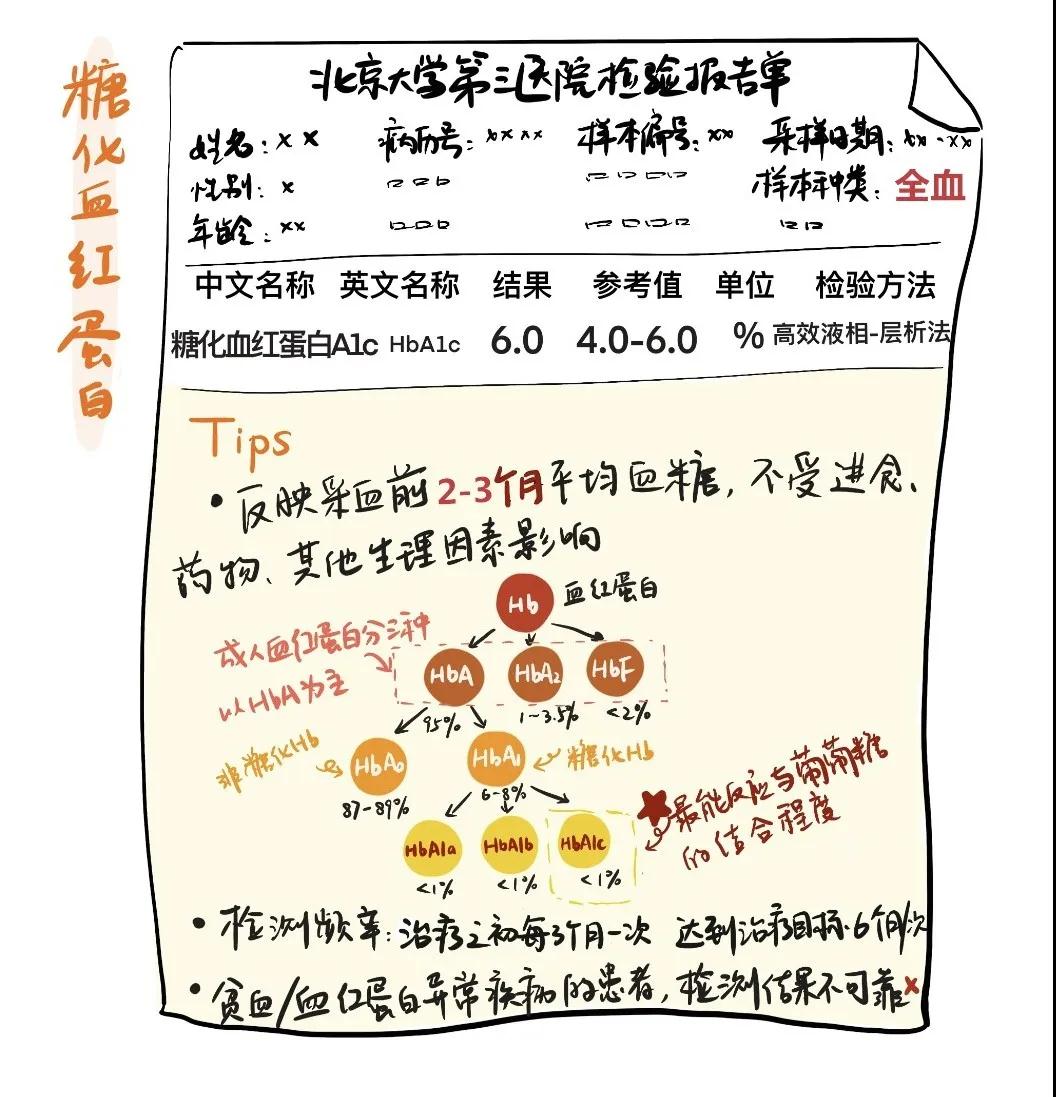 糖化血红蛋白
北京大学第三医院检验报告单
姓名：xx 病历号：xxxx 样本编号：xx 采样日期：xx-xx
性别：x 样本种类：全血
年龄：xx
中文名称 英文名称 结果 参考值 单位 检验方法
糖化血红蛋白A1c HbA1c 6.0 4.0-6.0 % 高效液相-层析法
Tips
• 反映采血前2-3个月平均血糖，不受进食、
药物、其他生理因素影响
Hb 血红蛋白
成人血红蛋白分三种
以HbA为主
HbA HbA2 HbF
95% 1~3.5% <2%
非糖化Hb HbA0 HbA1 糖化Hb
87-89% 6-8%
最能反应与葡萄糖
的结合程度
HbA1a HbA1b HbA1c
<1% <1% <1%
• 检测频率：治疗之初每3个月一次 达到治疗目标.6个月/次
• 贫血/血红蛋白异常疾病的患者，检测结果不可靠x